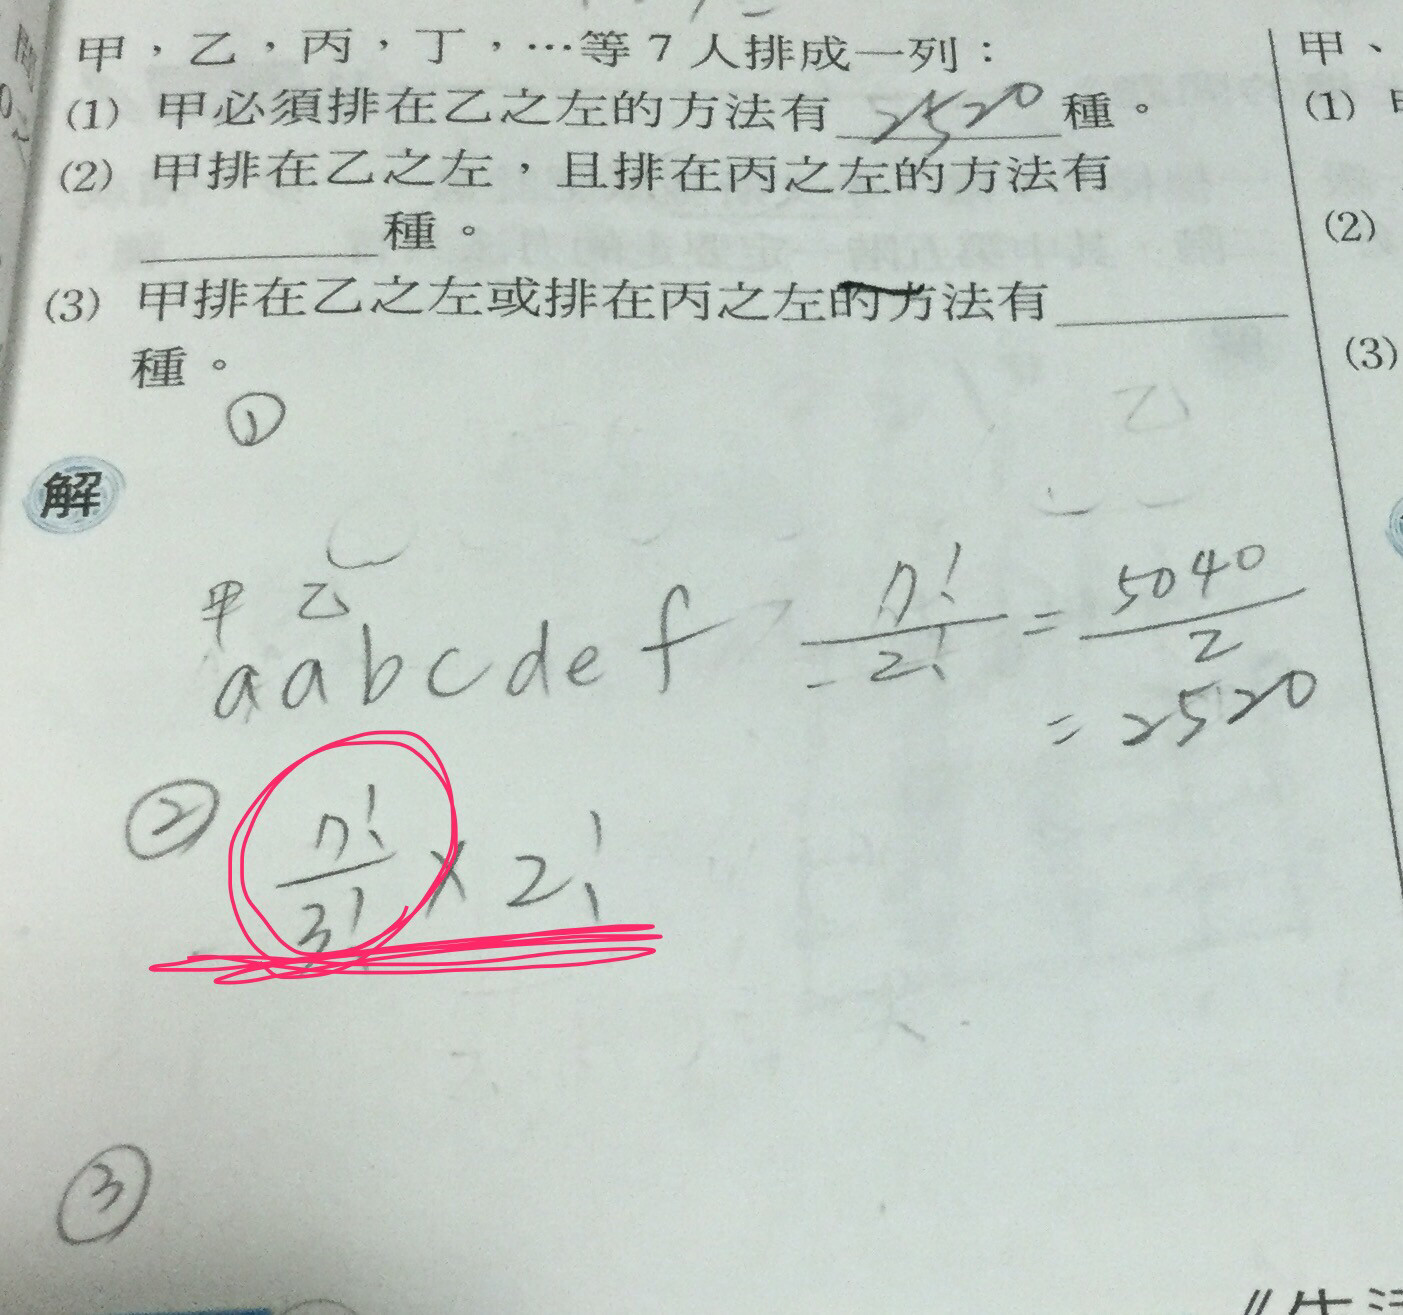 甲,乙,丙,丁,…等 7 人排成一列:
(1) 甲必須排在乙之左的方法有 2520 種。
(2) 甲排在乙之左,且排在丙之左的方法有
種。
(3) 甲排在乙之左或排在丙之左的方法有
種。
①
解
甲 乙
a a b c d e f = 7!/2! = 5040/2
= 2520
② 7!/3! × 2!
③
甲、
(1)
(2)
(3)